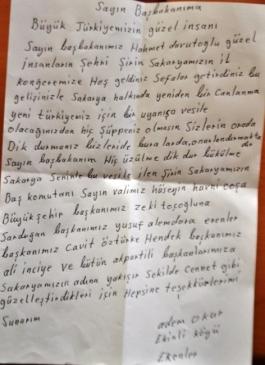 Sayın Başbakanıma
Büyük Türkiyemizin güzel insanı
Sayın başbakanımız Ahmet davutoğlu güzel
insanların Şehri Şirin Sakaryamızın il
kongremize Hoş geldiniz Sefalar getirdiniz bu
gelişinizle Sakarya halkında yeniden bir Canlanma
yeni türkiyemiz için bir uyanışa vesile
olacağınızdan hiç Şüppeniz olmasın Sizlerin orada
Dik durmanız bizleride buralarda
Sayın başbakanım Hiç üzülme dik dur bükülme
Sakarya Seninle bu vesile ilen Şirin Sakaryamızın
Baş komutanı Sayın valimiz hüseyin havni coşa
Büyük şehir başkanımız zeki toçoğluna
Serduğan başkanımız yusuf alemdara erenler
başkanımız Cavit öztürke Hendek başkanımız
ali inciye ve bütün akpartili başkanlarımıza
Sakaryamızın adına yakışır Şekilde Cennet gibi
güzelleştirdikleri için Hepsine teşekkürlerimi
Sunarım
adem okur
Ekinli köyü
Erenler